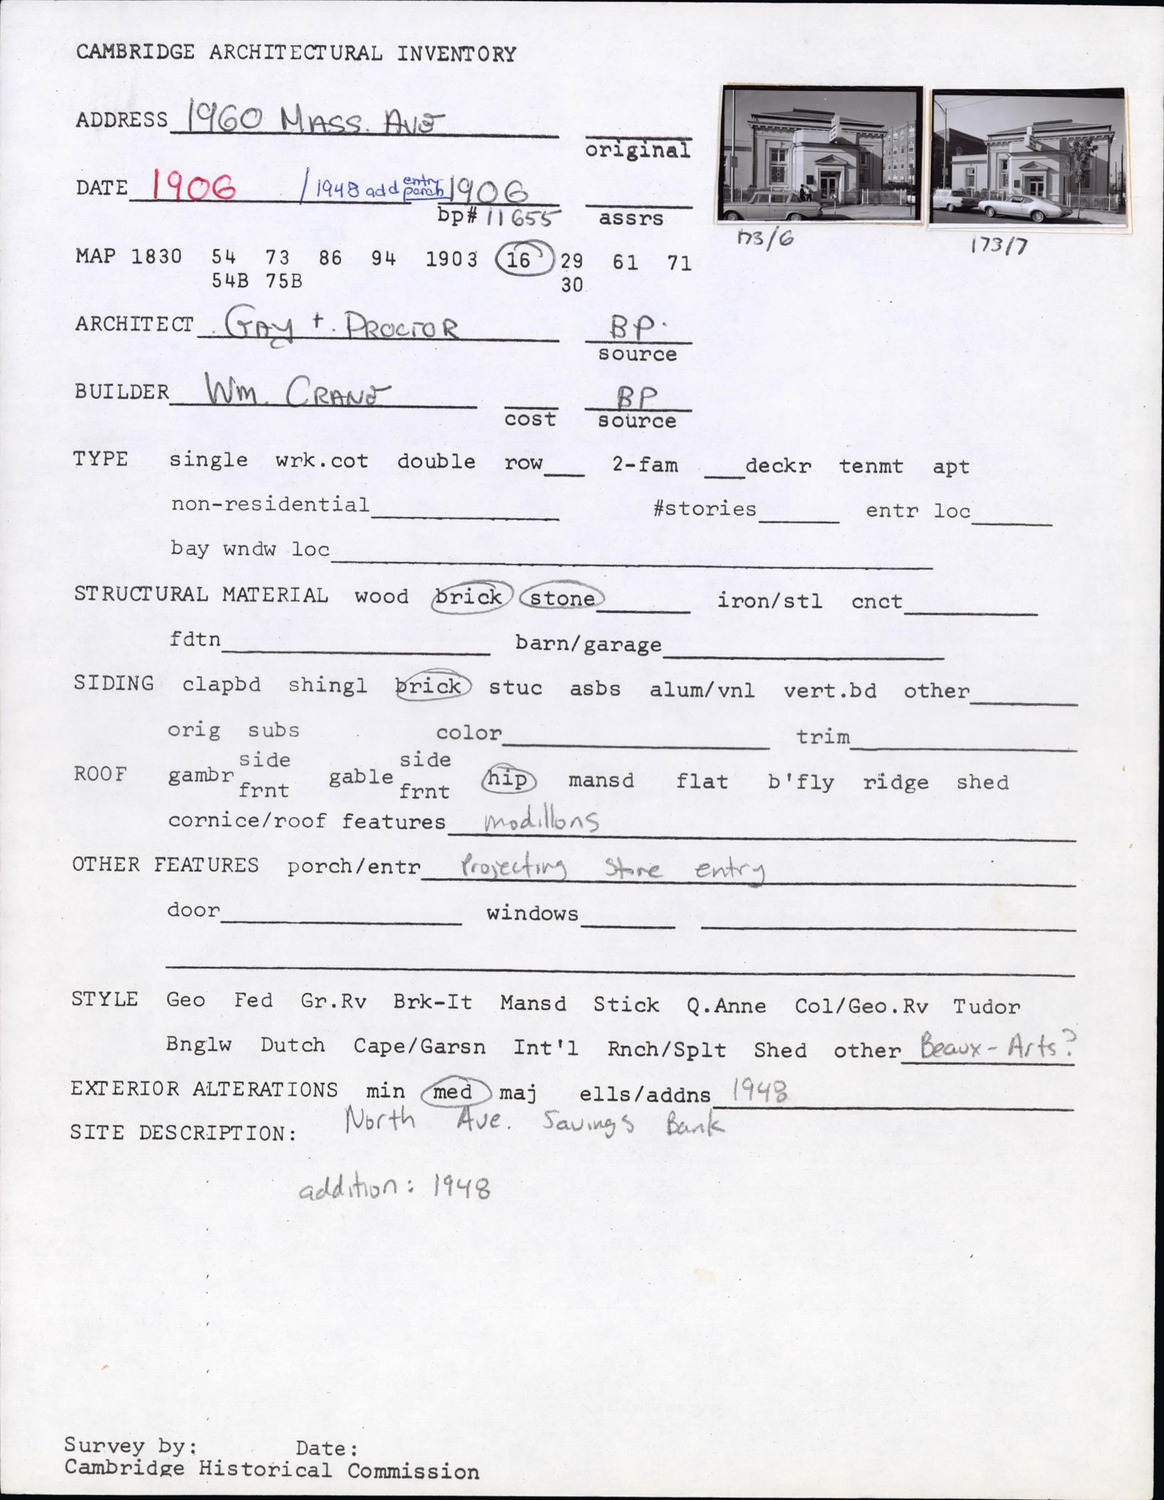 CAMBRIDGE ARCHITECTURAL INVENTORY
ADDRESS 1960 MASS. AVE
original
DATE 1906 / 1948 add entry porch 1906
bp# 11655 assrs
173/6 173/7
MAP 1830 54 73 86 94 1903 16 29 61 71
54B 75B 30
ARCHITECT GAY + PROCTOR BP.
source
BUILDER WM. CRANE BP
cost source
TYPE single wrk.cot double row___ 2-fam ___deckr tenmt apt
non-residential #stories entr loc
bay wndw loc
STRUCTURAL MATERIAL wood brick stone iron/stl cnct
fdtn barn/garage
SIDING clapbd shingl brick stuc asbs alum/vnl vert.bd other
orig subs color trim
side side
ROOF gambr gable hip mansd flat b'fly ridge shed
frnt frnt
cornice/roof features modillons
OTHER FEATURES porch/entr Projecting Stone entry
door windows
STYLE Geo Fed Gr.Rv Brk-It Mansd Stick Q.Anne Col/Geo.Rv Tudor
Bnglw Dutch Cape/Garsn Int'l Rnch/Splt Shed other Beaux-Arts?
EXTERIOR ALTERATIONS min med maj ells/addns 1948
SITE DESCRIPTION: North Ave. Savings Bank
addition: 1948
Survey by: Date:
Cambridge Historical Commission